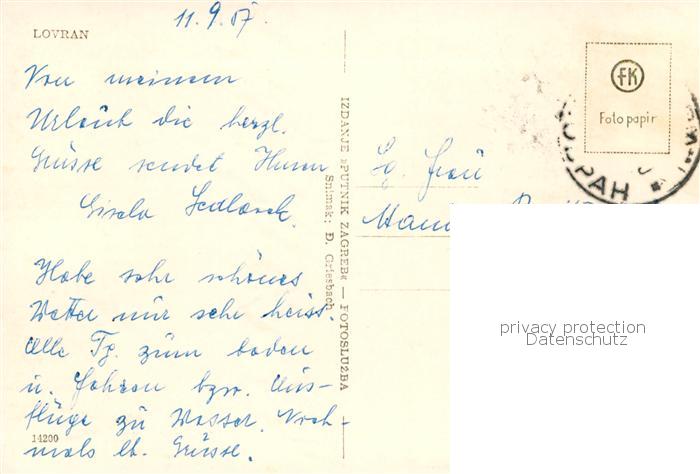 LOVRAN
11.9.57.
Von meinem
Urlaub die herzl.
Grüsse sendet Ihnen
Gisela
Habe sehr schönes
Wetter nur sehr heiss.
Alle Tg. zum baden
u. fahren bzw. Aus-
flüge zu Wasser. Noch-
mals lb. Grüsse.
14200
IZDANJE »PUTNIK ZAGREB« — FOTOSLUŽBA
Snimak: Đ. Griesbach
FK
Foto papir
Sg. Frau
privacy protection
Datenschutz